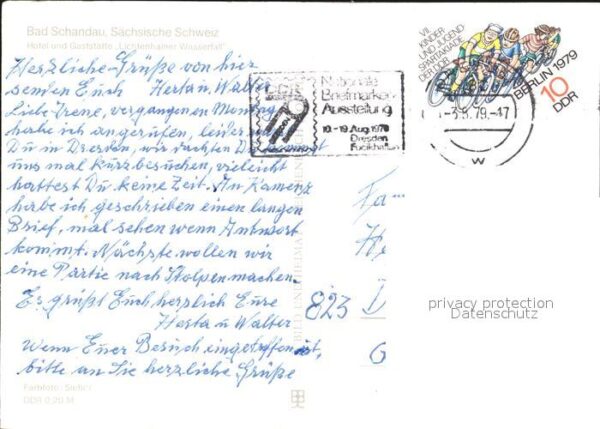 Bad Schandau, Sächsische Schweiz
Hotel und Gaststätte „Lichtenhainer Wasserfall“
Herzliche Grüße von hier
senden Euch Herta u. Walter
Liebe Irene, vergangenen Montag
habe ich angerufen, leider warst
Du in Dresden, wir dachten Du kommst
uns mal kurz besuchen, vielleicht
hattest Du keine Zeit. An Kamenz
habe ich geschrieben einen langen
Brief, mal sehen wenn Antwort
kommt. Nächste wollen wir
eine Partie nach Stolpen machen.
Es grüßt Euch herzlich Eure
Herta u. Walter
Wenn Euer Besuch eingetroffen ist,
bitte an Sie herzliche Grüße
Farbfoto:
DDR 0,20 M
Nationale
Briefmarken-
Ausstellung
10.-19. Aug. 1979
Dresden
Fucikhalle
VII.
KINDER
UND JUGEND-
SPARTAKIADE
DER DDR
BERLIN 1979
10
DDR
-3.8.79.-17
w
Fa
He
823 D
G
privacy protection
Datenschutz